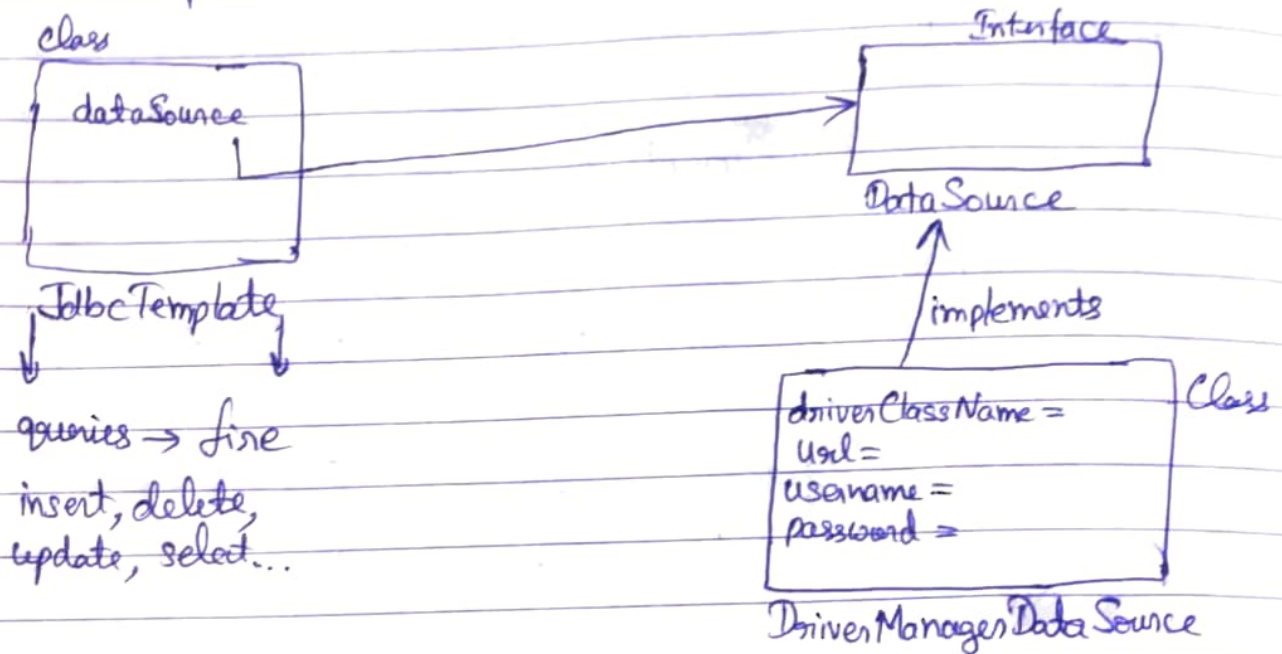 Class
dataSource
JdbcTemplate
queries → fire
insert, delete,
update, select...
Interface
DataSource
implements
Class
driverClassName =
url =
username =
password =
DriverManagerDataSource